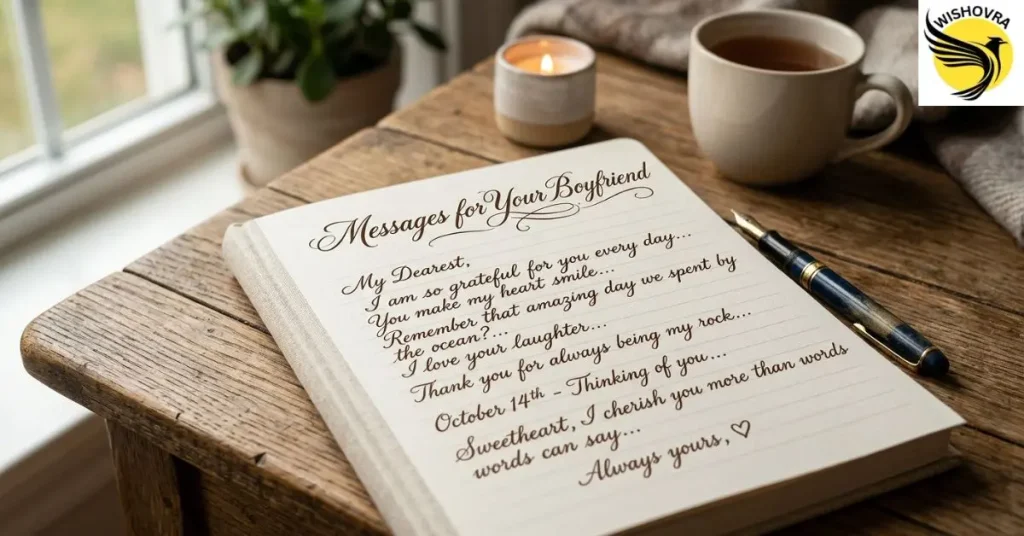 WISHOVRA
Messages for Your Boyfriend
My Dearest,
I am so grateful for you every day...
You make my heart smile...
Remember that amazing day we spent by
the ocean?...
I love your laughter...
Thank you for always being my rock...
October 14th - Thinking of you...
Sweetheart, I cherish you more than words
words can say...
Always yours, ♡